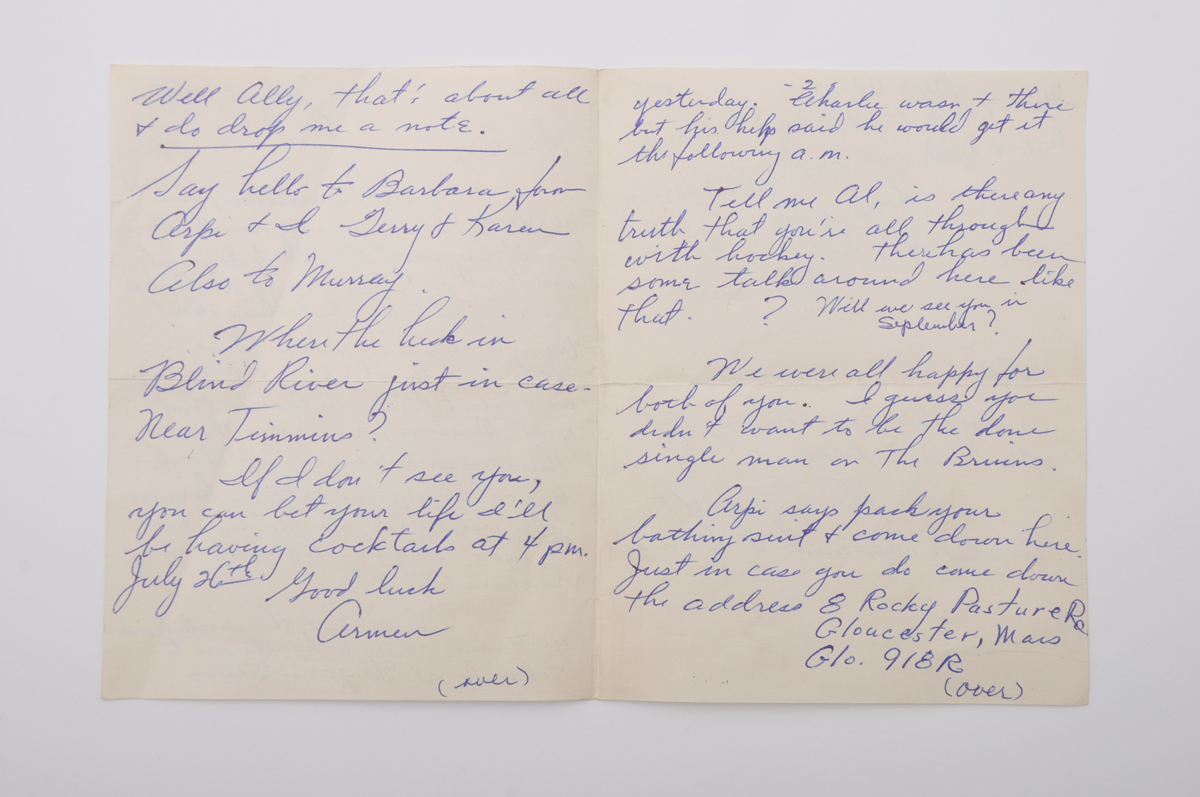 Well Ally, that's about all
& do drop me a note.
Say hello to Barbara from
Arpi & I Gerry & Karen
Also to Murray.
Where the heck in
Blind River just in case -
Near Timmins?
If I don't see you,
you can bet your life I'll
be having cocktails at 4 pm.
July 26th Good luck
Armen
(over)
-2-
yesterday. Charlie wasn't there
but his help said he would get it
the following a.m.
Tell me Al, is there any
truth that you're all through
with hockey. There has been
some talk around here like
that. ? Will we see you in
September?
We were all happy for
both of you. I guess you
didn't want to be the lone
single man on The Bruins.
Arpi says pack your
bathing suit & come down here.
Just in case you do come down
the address 8 Rocky Pasture Rd
Gloucester, Mass
Glo. 918R
(over)